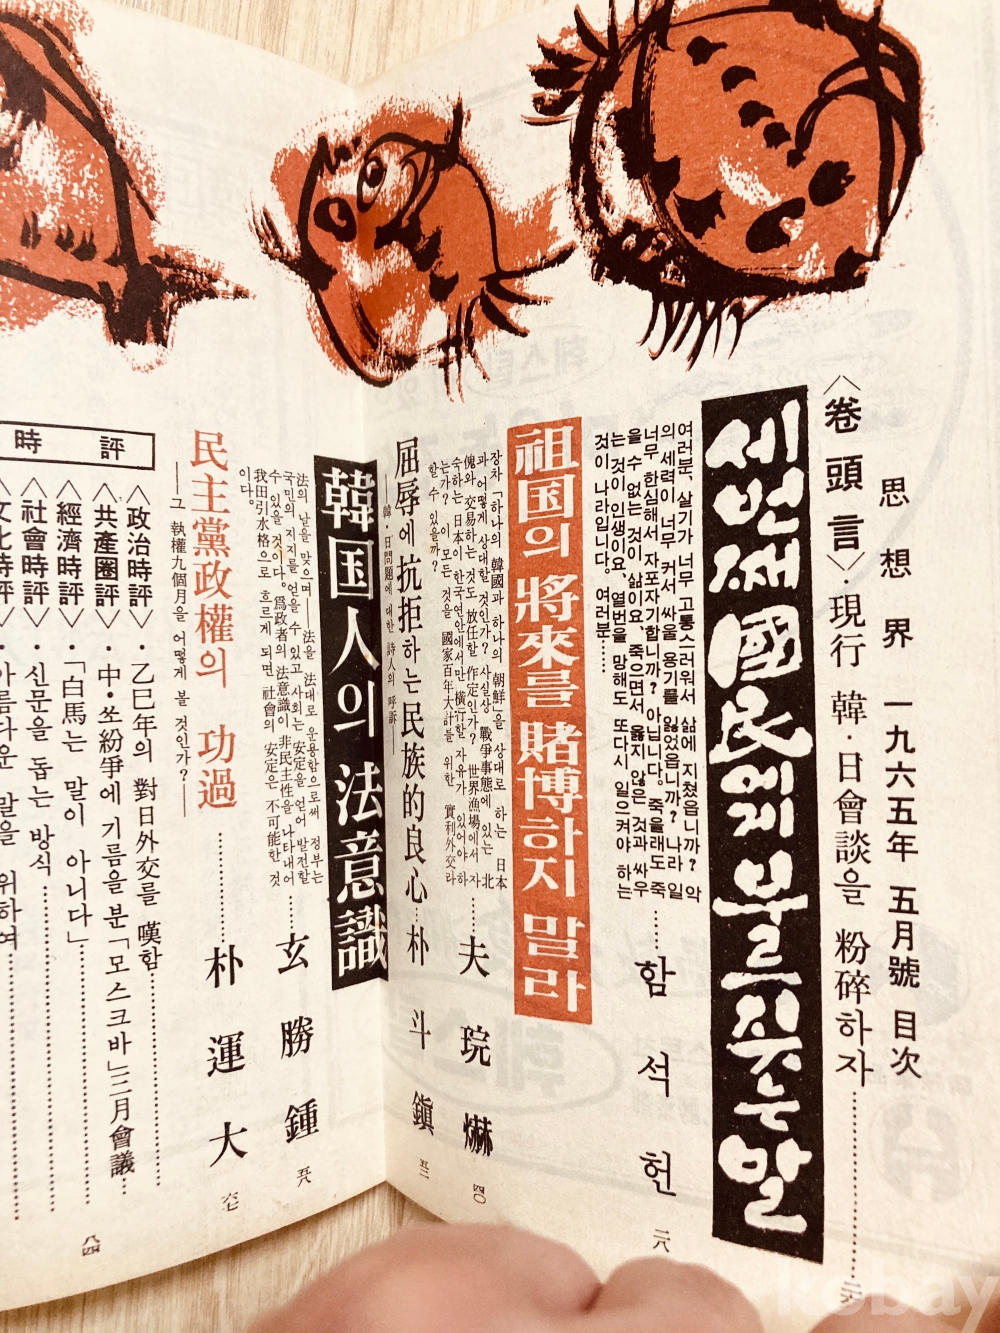 思想界 一九六五年 五月號 目次
〈卷頭言〉·現行 韓·日會談을 粉碎하자
세번째 國民에게 부르짖는 말
여러분, 살기가 너무 고통스러워서 삶에 지쳤읍니까? 악
의 세력이 너무 커서 싸울 용기를 잃었읍니까? 나라 일
너무 한심해서 자포자기합니까? 아닙니다. 죽을래도 죽
을 수 없는 것이 삶이요, 죽으면서 옳지 않은 것과 싸우
는 것이 인생이요, 열번을 망해도 또다시 일으켜야 하는
것이 나라입니다. 여러분……
함석헌 二八
祖国의 將來를 賭博하지 말라
장차 「하나의 韓國과 하나의 朝鮮」을 상대로 하는 日本
과 어떻게 상대할 것인가? 사실상 戰爭事態에 있는 北
傀와 交易하는 것도 放任할 作定인가? 世界漁場에서 자
숙하는 日本이 한국연안에서만 橫행할 자유가 있어야 하
는가? 이 모든 것을 國家百年大計를 위한 實利外交라
할 수 있을까?
夫琓爀 四〇
屈辱에 抗拒하는 民族的良心
——韓·日問題에 대한 詩人의 呼訴——
朴斗鎭 五三
韓国人의 法意識
法의 날을 맞으며——法을 法대로 운용함으로써 정부는
국민의 지지를 얻을 수 있고 사회는 安定을 얻어 발전할
수 있을 것이다. 爲政者의 法意識이 非民主性을 나타내어
我田引水格으로 흐르게 되면 社會의 安定은 不可能한 것
이다.
玄勝鍾 五八
民主黨政權의 功過
——그 執權九個月을 어떻게 볼 것인가?——
朴運大 六七
時評
〈政治時評〉·乙巳年의 對日外交를 嘆함
〈共產圈時評〉·中·쏘紛爭에 기름을 분「모스크바」三月會議
〈經濟時評〉·「白馬는 말이 아니다」
〈社會時評〉·신문을 돕는 방식
〈文化時評〉·아름다운 말을 위하여
八四
kobay